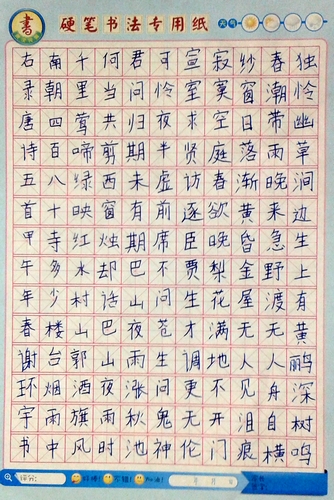 書
硬笔书法专用纸
天气
独怜幽草涧边生上有黄鹂深树鸣
春潮带雨晚来急野渡无人舟自横
纱窗日落渐黄昏金屋无人见泪痕
寂寞空庭春欲晚梨花满地不开门
宣室求贤访逐臣贾生才调更无伦
可怜夜半虚前席不问苍生问鬼神
君问归期未有期巴山夜雨涨秋池
何当共剪西窗烛却话巴山夜雨时
千里莺啼绿映红水村山郭酒旗风
南朝四百八十寺多少楼台烟雨中
右录唐诗五首甲午年春谢环宇书
评分:
好棒! 不错! 加油!
年 月 日